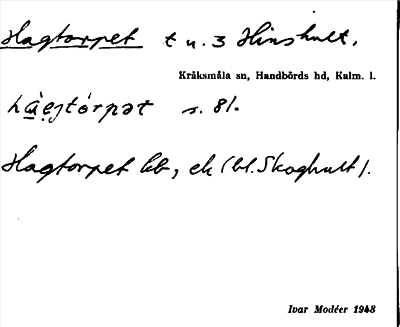 Hagtorpet t u. 3 Hinshult.
Kråksmåla sn, Handbörds hd, Kalm. l.
s. 81.
Hagtorpet bb, ek (bl. Skoghult).
Ivar Modéer 1948